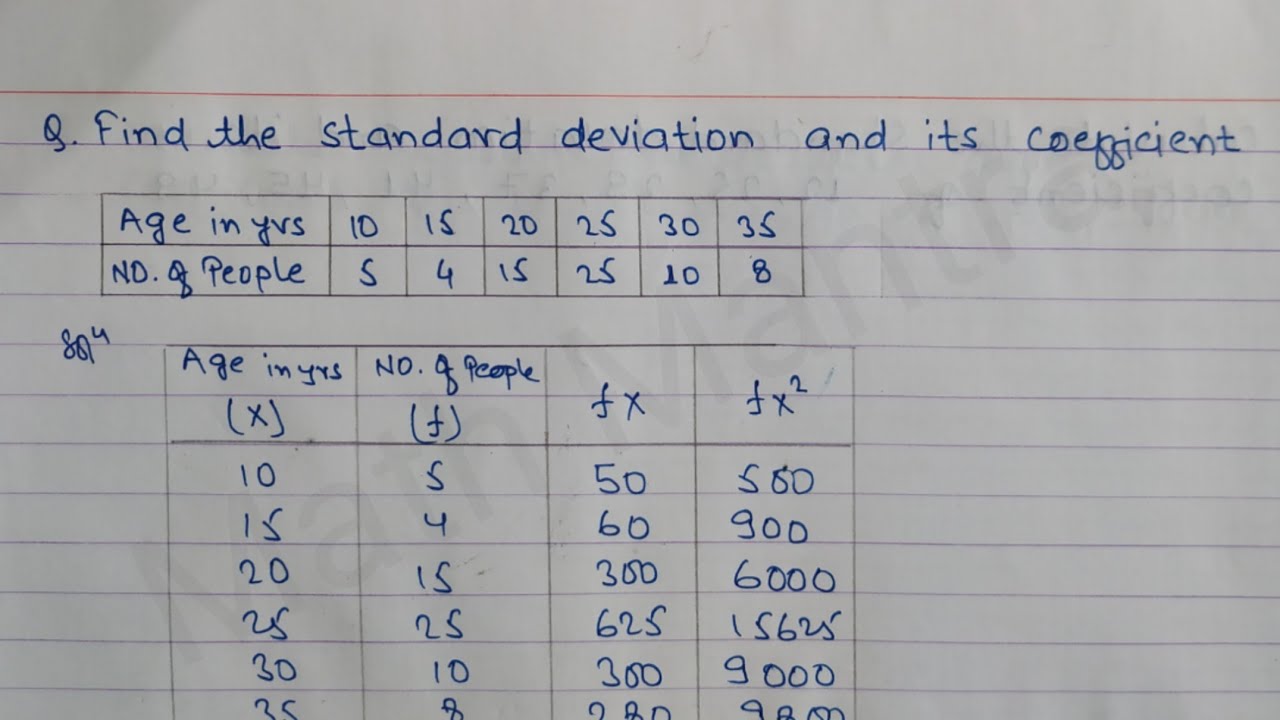 Q. Find the standard deviation and its coefficient
Age in yrs 10 15 20 25 30 35
NO. of People 5 4 15 25 10 8
Solⁿ
Age in yrs (x) NO. of People (f) fx fx²
10 5 50 500
15 4 60 900
20 15 300 6000
25 25 625 15625
30 10 300 9000
35 8 280 9800
Math Mantra